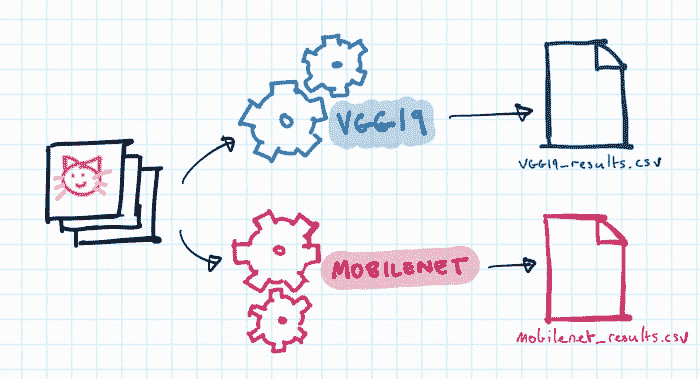 VGG19
VGG19_results.csv
MOBILENET
mobilenet_results.csv